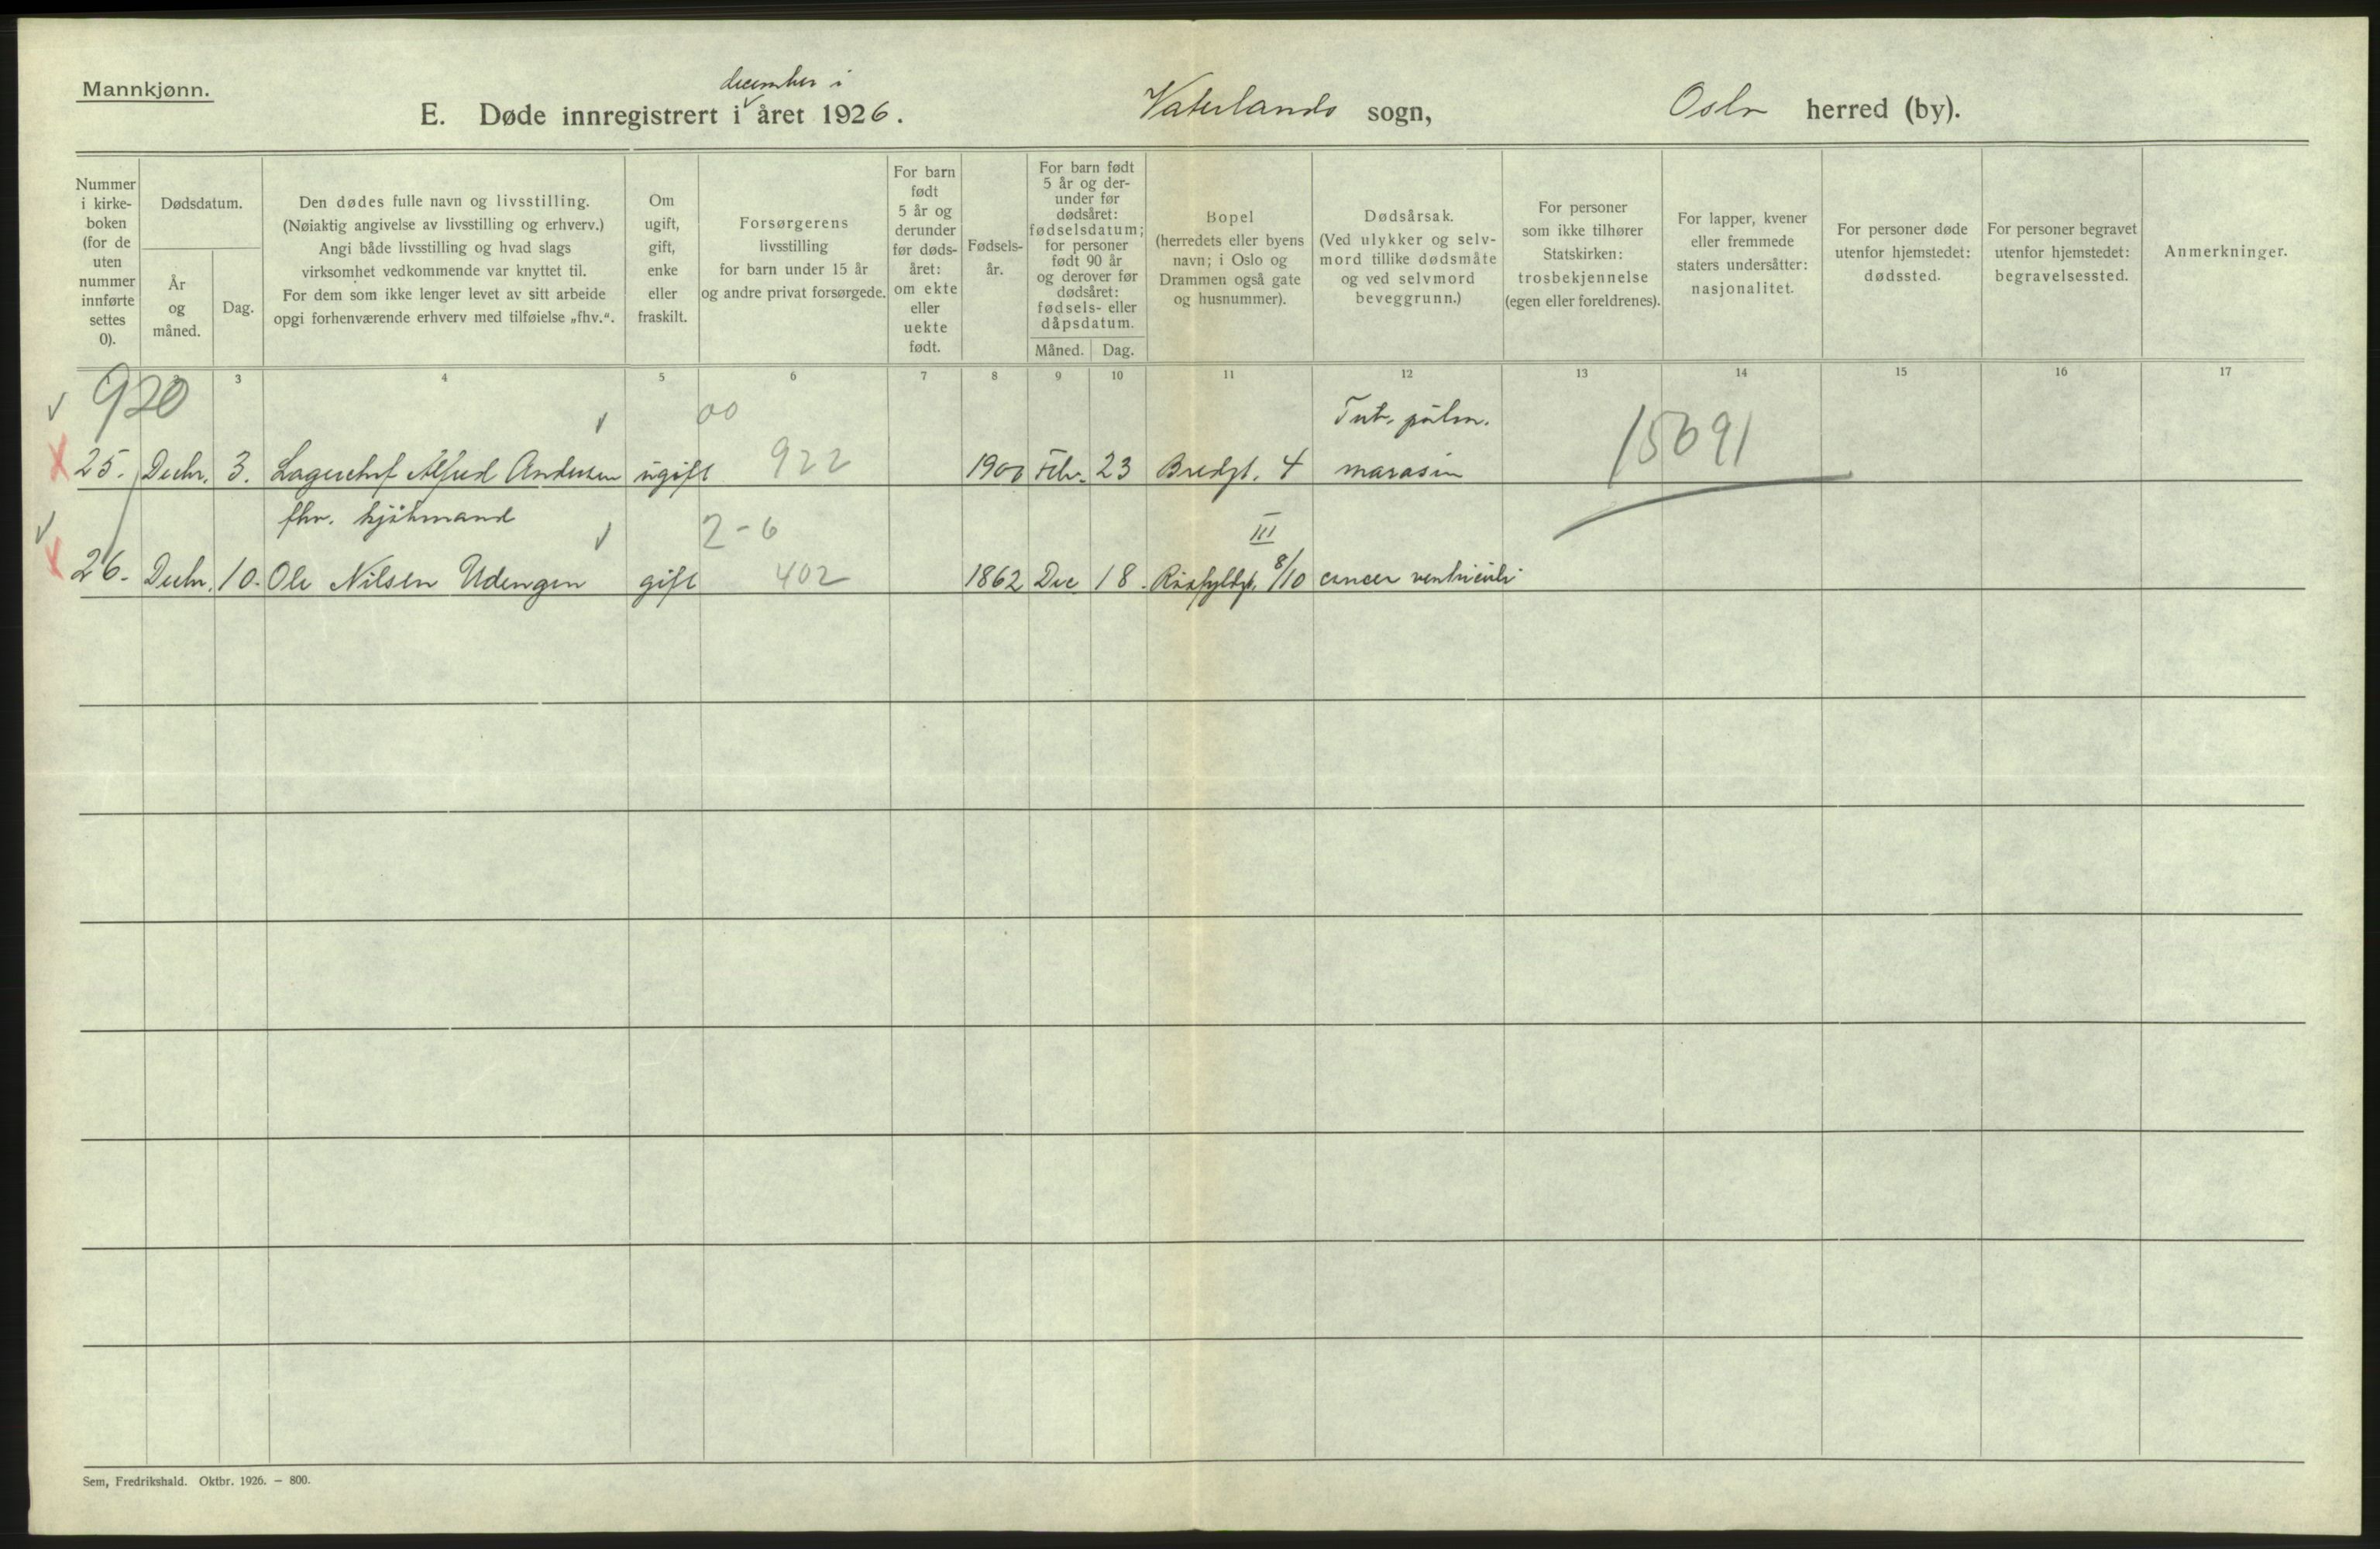 Mannkjønn.
december i
E. Døde innregistrert i året 1926.
Vaterlands sogn,
Oslo herred (by).
Nummer i kirke- boken (for de uten nummer innførte settes 0).
Dødsdatum.
År og måned.
Dag.
Den dødes fulle navn og livsstilling.
(Nøiaktig angivelse av livsstilling og erhverv.)
Angi både livsstilling og hvad slags
virksomhet vedkommende var knyttet til.
For dem som ikke lenger levet av sitt arbeide
opgi forhenværende erhverv med tilføielse „fhv.“.
Om ugift, gift, enke eller fraskilt.
Forsørgerens
livsstilling
for barn under 15 år
og andre privat forsørgede.
For barn født 5 år og derunder før døds- året: om ekte eller uekte født.
Fødsels- år.
For barn født 5 år og der- under før dødsåret: fødselsdatum; for personer født 90 år og derover før dødsåret: fødsels- eller dåpsdatum.
Måned.
Dag.
Bopel
(herredets eller byens
navn; i Oslo og
Drammen også gate
og husnummer).
Dødsårsak.
(Ved ulykker og selv-
mord tillike dødsmåte
og ved selvmord
beveggrunn.)
For personer
som ikke tilhører
Statskirken:
trosbekjennelse
(egen eller foreldrenes).
For lapper, kvener
eller fremmede
staters undersåtter:
nasjonalitet.
For personer døde
utenfor hjemstedet:
dødssted.
For personer begravet
utenfor hjemstedet:
begravelsessted.
Anmerkninger.
3 4 5 6 7 8 9 10 11 12 13 14 15 16 17
920
00
Tub. pulm.
25. Decbr. 3. Lagerchef Alfred Andersen ugift 922 1900 Febr. 23 Bredgt. 4 marasm 15691
fhv. kjøbmand 2-6 III
26. Decbr. 10. Ole Nilsen Udengen gift 402 1862 Dec 18. 8/10 cancer ventriculi
Sem, Fredrikshald. Oktbr. 1926. — 800.